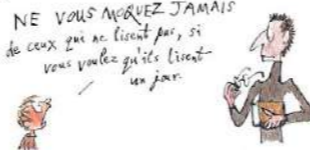 NE VOUS MOQUEZ JAMAIS
de ceux qui ne lisent pas, si
vous voulez qu'ils lisent
un jour.